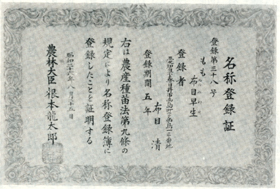 名称登録証
登録第三十八号
もも 布目早生
登録者
布目 清
登録期間 五年
右は農産種苗法第九條の
規定により名称登録簿に
登録したことを証明する
農林大臣 根本龍太郎